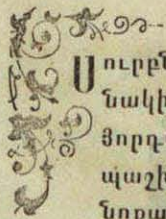 Սուրբ
նակի
Յորդ
պաշխ
նորա